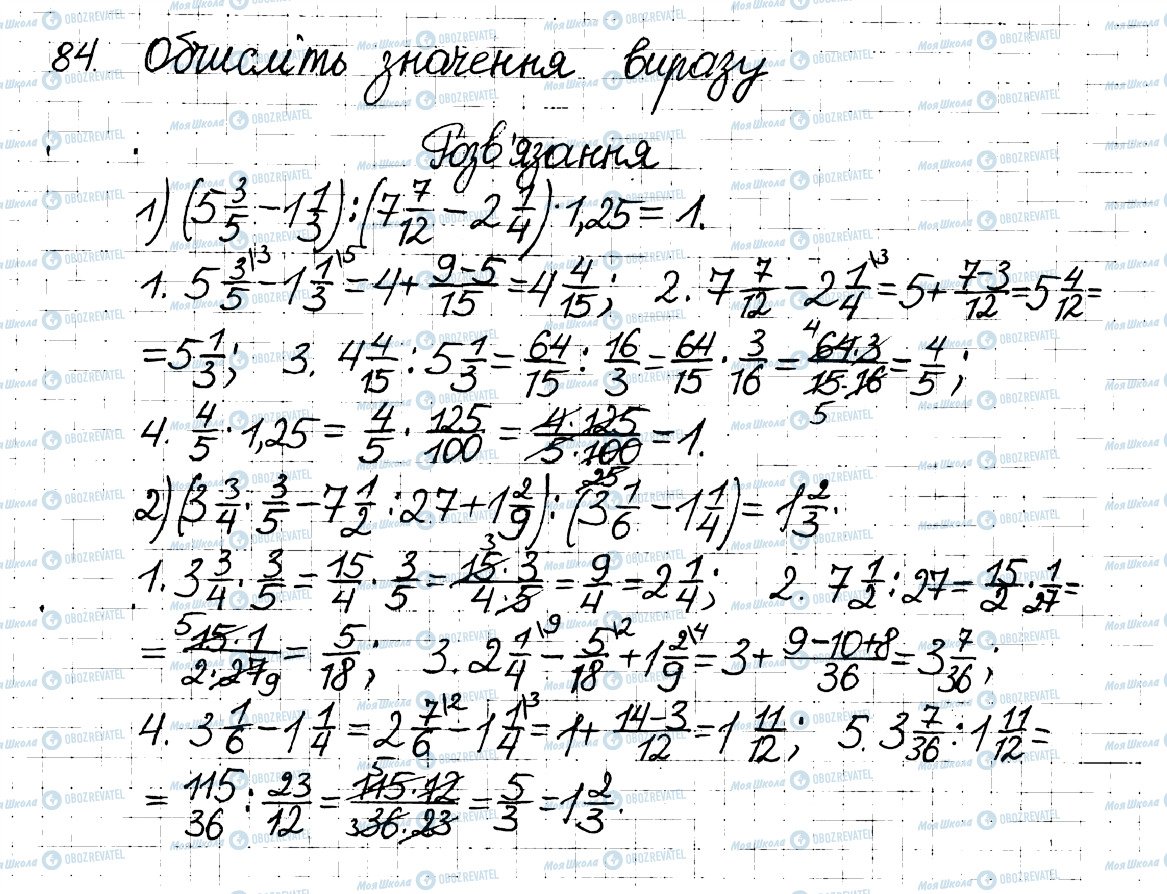 84. Обчисліть значення виразу
Розв'язання
1) (5 3/5 − 1 1/3) : (7 7/12 − 2 1/4) · 1,25 = 1.
1. 5 3/5\3 − 1 1/3\5 = 4 + (9−5)/15 = 4 4/15; 2. 7 7/12 − 2 1/4\3 = 5 + (7−3)/12 = 5 4/12 =
= 5 1/3; 3. 4 4/15 : 5 1/3 = 64/15 : 16/3 = 64/15 · 3/16 = (64·3)/(15·16) = 4/5;
4. 4/5 · 1,25 = 4/5 · 125/100 = (4·125)/(5·100) = 1.
2) (3 3/4 · 3/5 − 7 1/2 : 27 + 1 2/9) : (3 1/6 − 1 1/4) = 1 2/3.
1. 3 3/4 · 3/5 = 15/4 · 3/5 = (15·3)/(4·5) = 9/4 = 2 1/4; 2. 7 1/2 : 27 = 15/2 · 1/27 =
= (15·1)/(2·27) = 5/18; 3. 2 1/4\9 − 5/18\2 + 1 2/9\4 = 3 + (9−10+8)/36 = 3 7/36;
4. 3 1/6 − 1 1/4 = 2 7/6\2 − 1 1/4\3 = 1 + (14−3)/12 = 1 11/12; 5. 3 7/36 : 1 11/12 =
= 115/36 : 23/12 = (115·12)/(36·23) = 5/3 = 1 2/3.